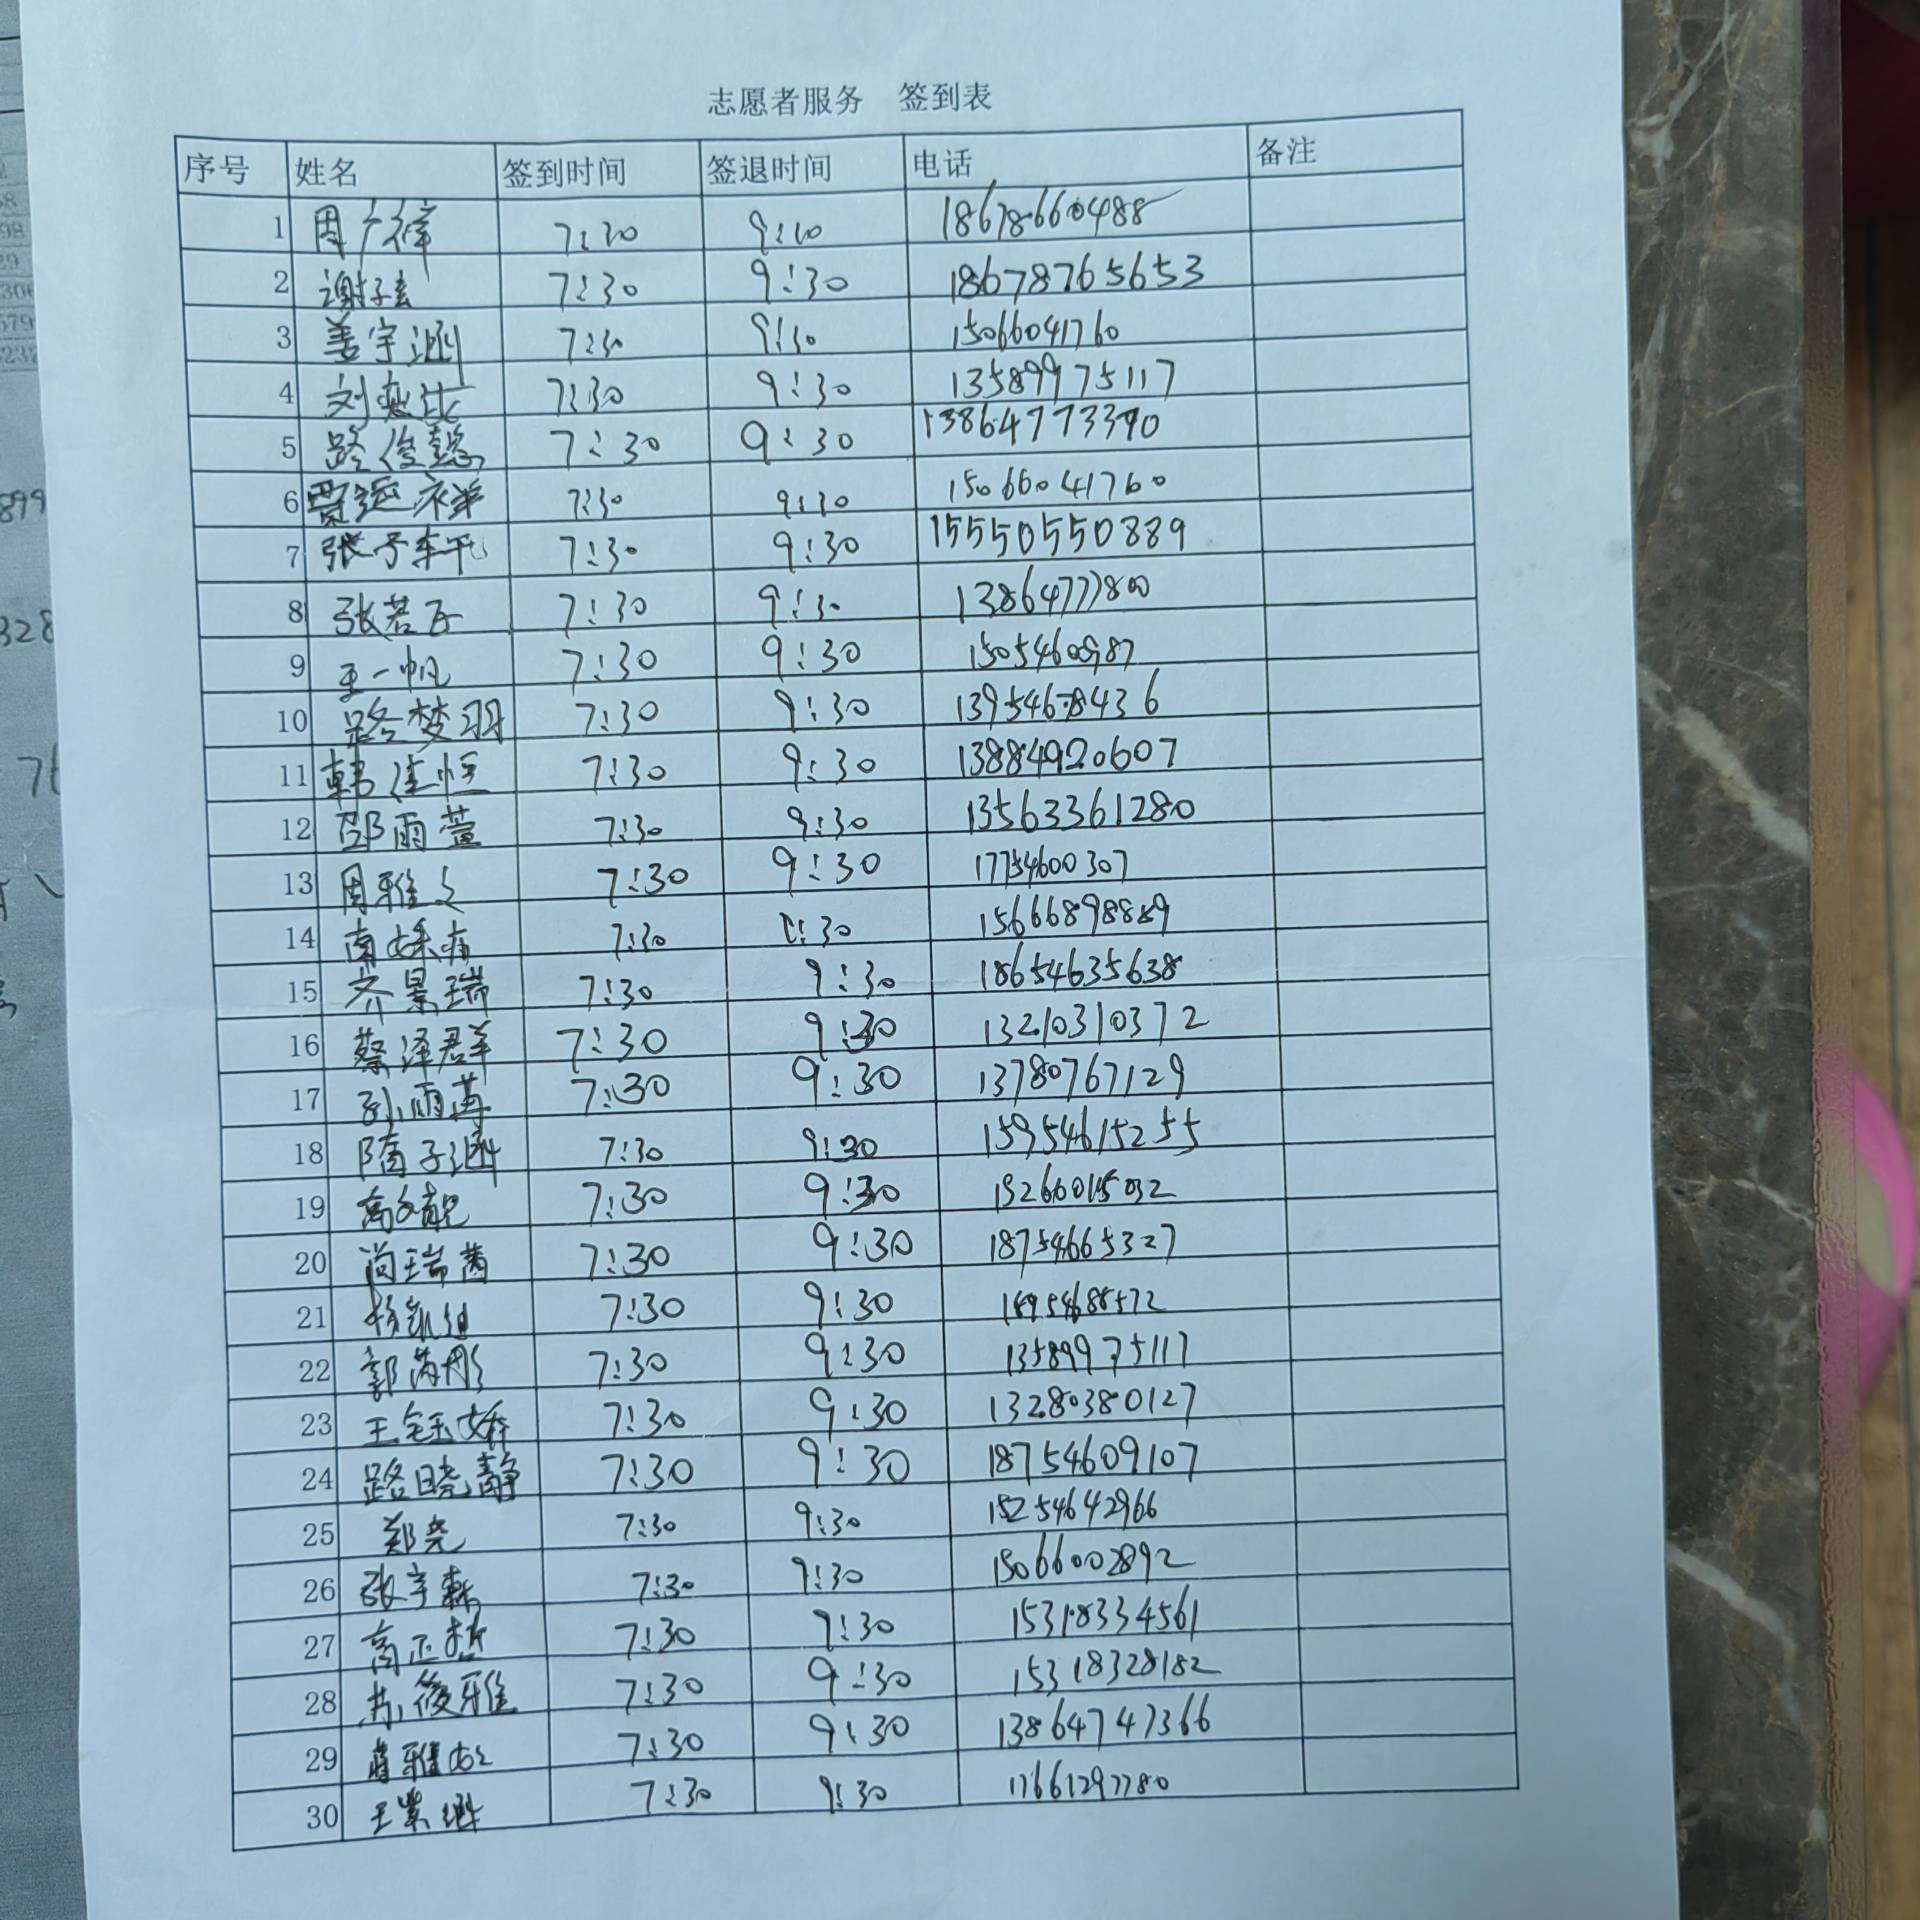 志愿者服务 签到表
序号 姓名 签到时间 签退时间 电话 备注
1 周广律 7:30 9:30 18678660488
2 谢子玄 7:30 9:30 18678765653
3 姜宇涵 7:30 9:30 15066041760
4 刘奕 7:30 9:30 13589975117
5 路俊懿 7:30 9:30 13864773390
6 贾运祥 7:30 9:30 15066041760
7 张予 7:30 9:30 15550550889
8 张若 7:30 9:30 13864777800
9 王一帆 7:30 9:30 15054600987
10 路梦羽 7:30 9:30 13954678436
11 韩佳恒 7:30 9:30 13884920607
12 邵雨萱 7:30 9:30 13563361280
13 周雅文 7:30 9:30 17754600307
14 南 7:30 9:30 15666898889
15 齐景瑞 7:30 9:30 18654635638
16 蔡泽群 7:30 9:30 13210310372
17 孙雨苒 7:30 9:30 13780767129
18 隋子涵 7:30 9:30 15954615255
19 高文靓 7:30 9:30
20 尚瑞茜 7:30 9:30 18754665327
21 杨凯迪 7:30 9:30
22 郭芮彤 7:30 9:30 13589975117
23 王钰婷 7:30 9:30 13280380127
24 路晓静 7:30 9:30 18754609107
25 郑尧 7:30 9:30 15254642966
26 张宇森 7:30 9:30 15066002892
27 高正哲 7:30 9:30 15318334561
28 苏俊雅 7:30 9:30 15318328182
29 蒋雅 7:30 9:30 13864747366
30 王紫 7:30 9:30 17661297780